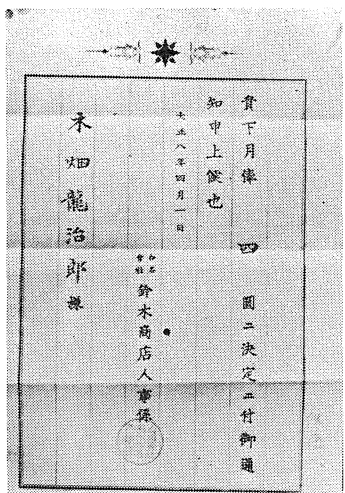 貴下月俸 四 圓ニ決定ニ付御通
知申上候也
大正八年四月一日
合名会社 鈴木商店人事係
木畑龍治郎 様